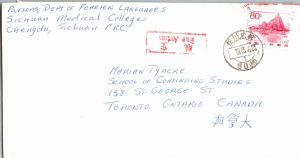 Parsons, Dept of Foreign Languages
Sichuan Medical College
Chengdu, Sichuan PRC
80
航空
Par Avion
Marian Tyacke
School of Continuing Studies
158 St. George St
Toronto Ontario Canada
加拿大